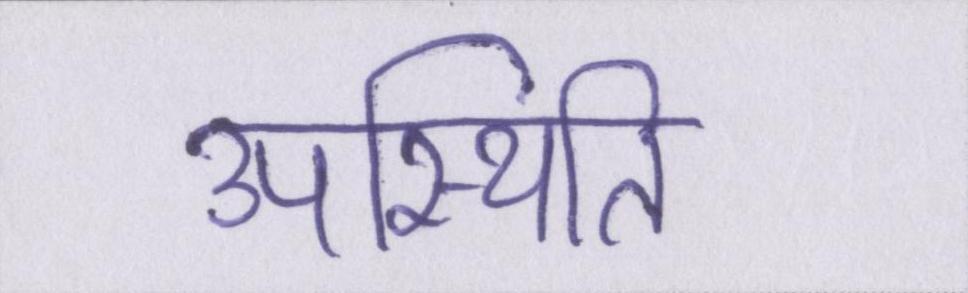 उपस्थिंति